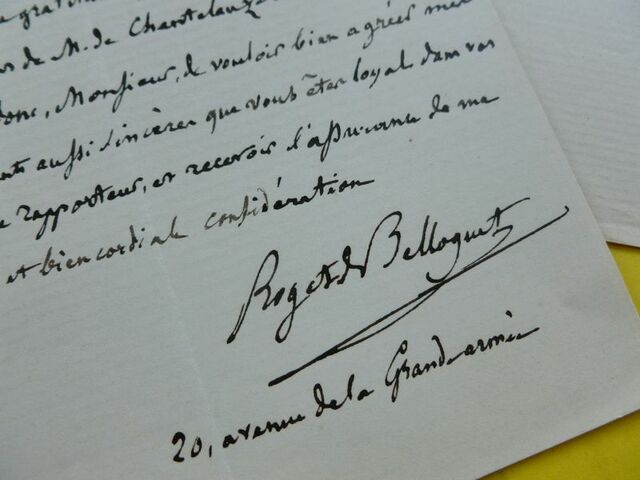 gratit
de M. de Chantelauze
donc, Monsieur, de vouloir bien agréer mes
aussi sincères que vous êtes loyal dans vos
rapporteur, et recevoir l'assurance de ma
et bien cordiale considération
Roget de Belloguet
20, avenue de la Grande armée